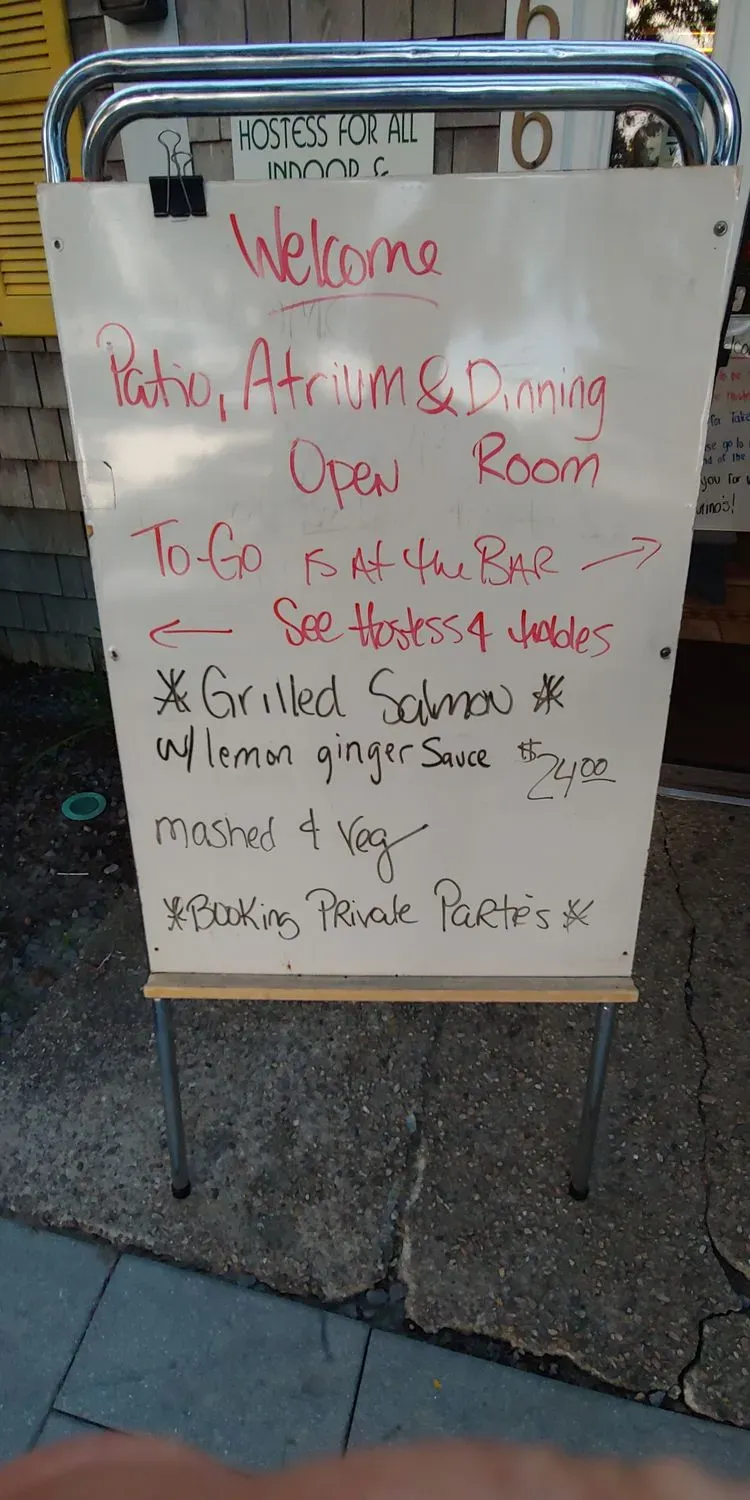 6
6
HOSTESS FOR ALL
INDOOR &
Welcome
Patio, Atrium & Dinning
Open Room
To-Go is At the BAR →
← See Hostess 4 tables
* Grilled Salmon *
w/ lemon ginger Sauce $24.00
mashed & Veg
*Booking Private Partie's *
for Take
se go to
d of the
you for